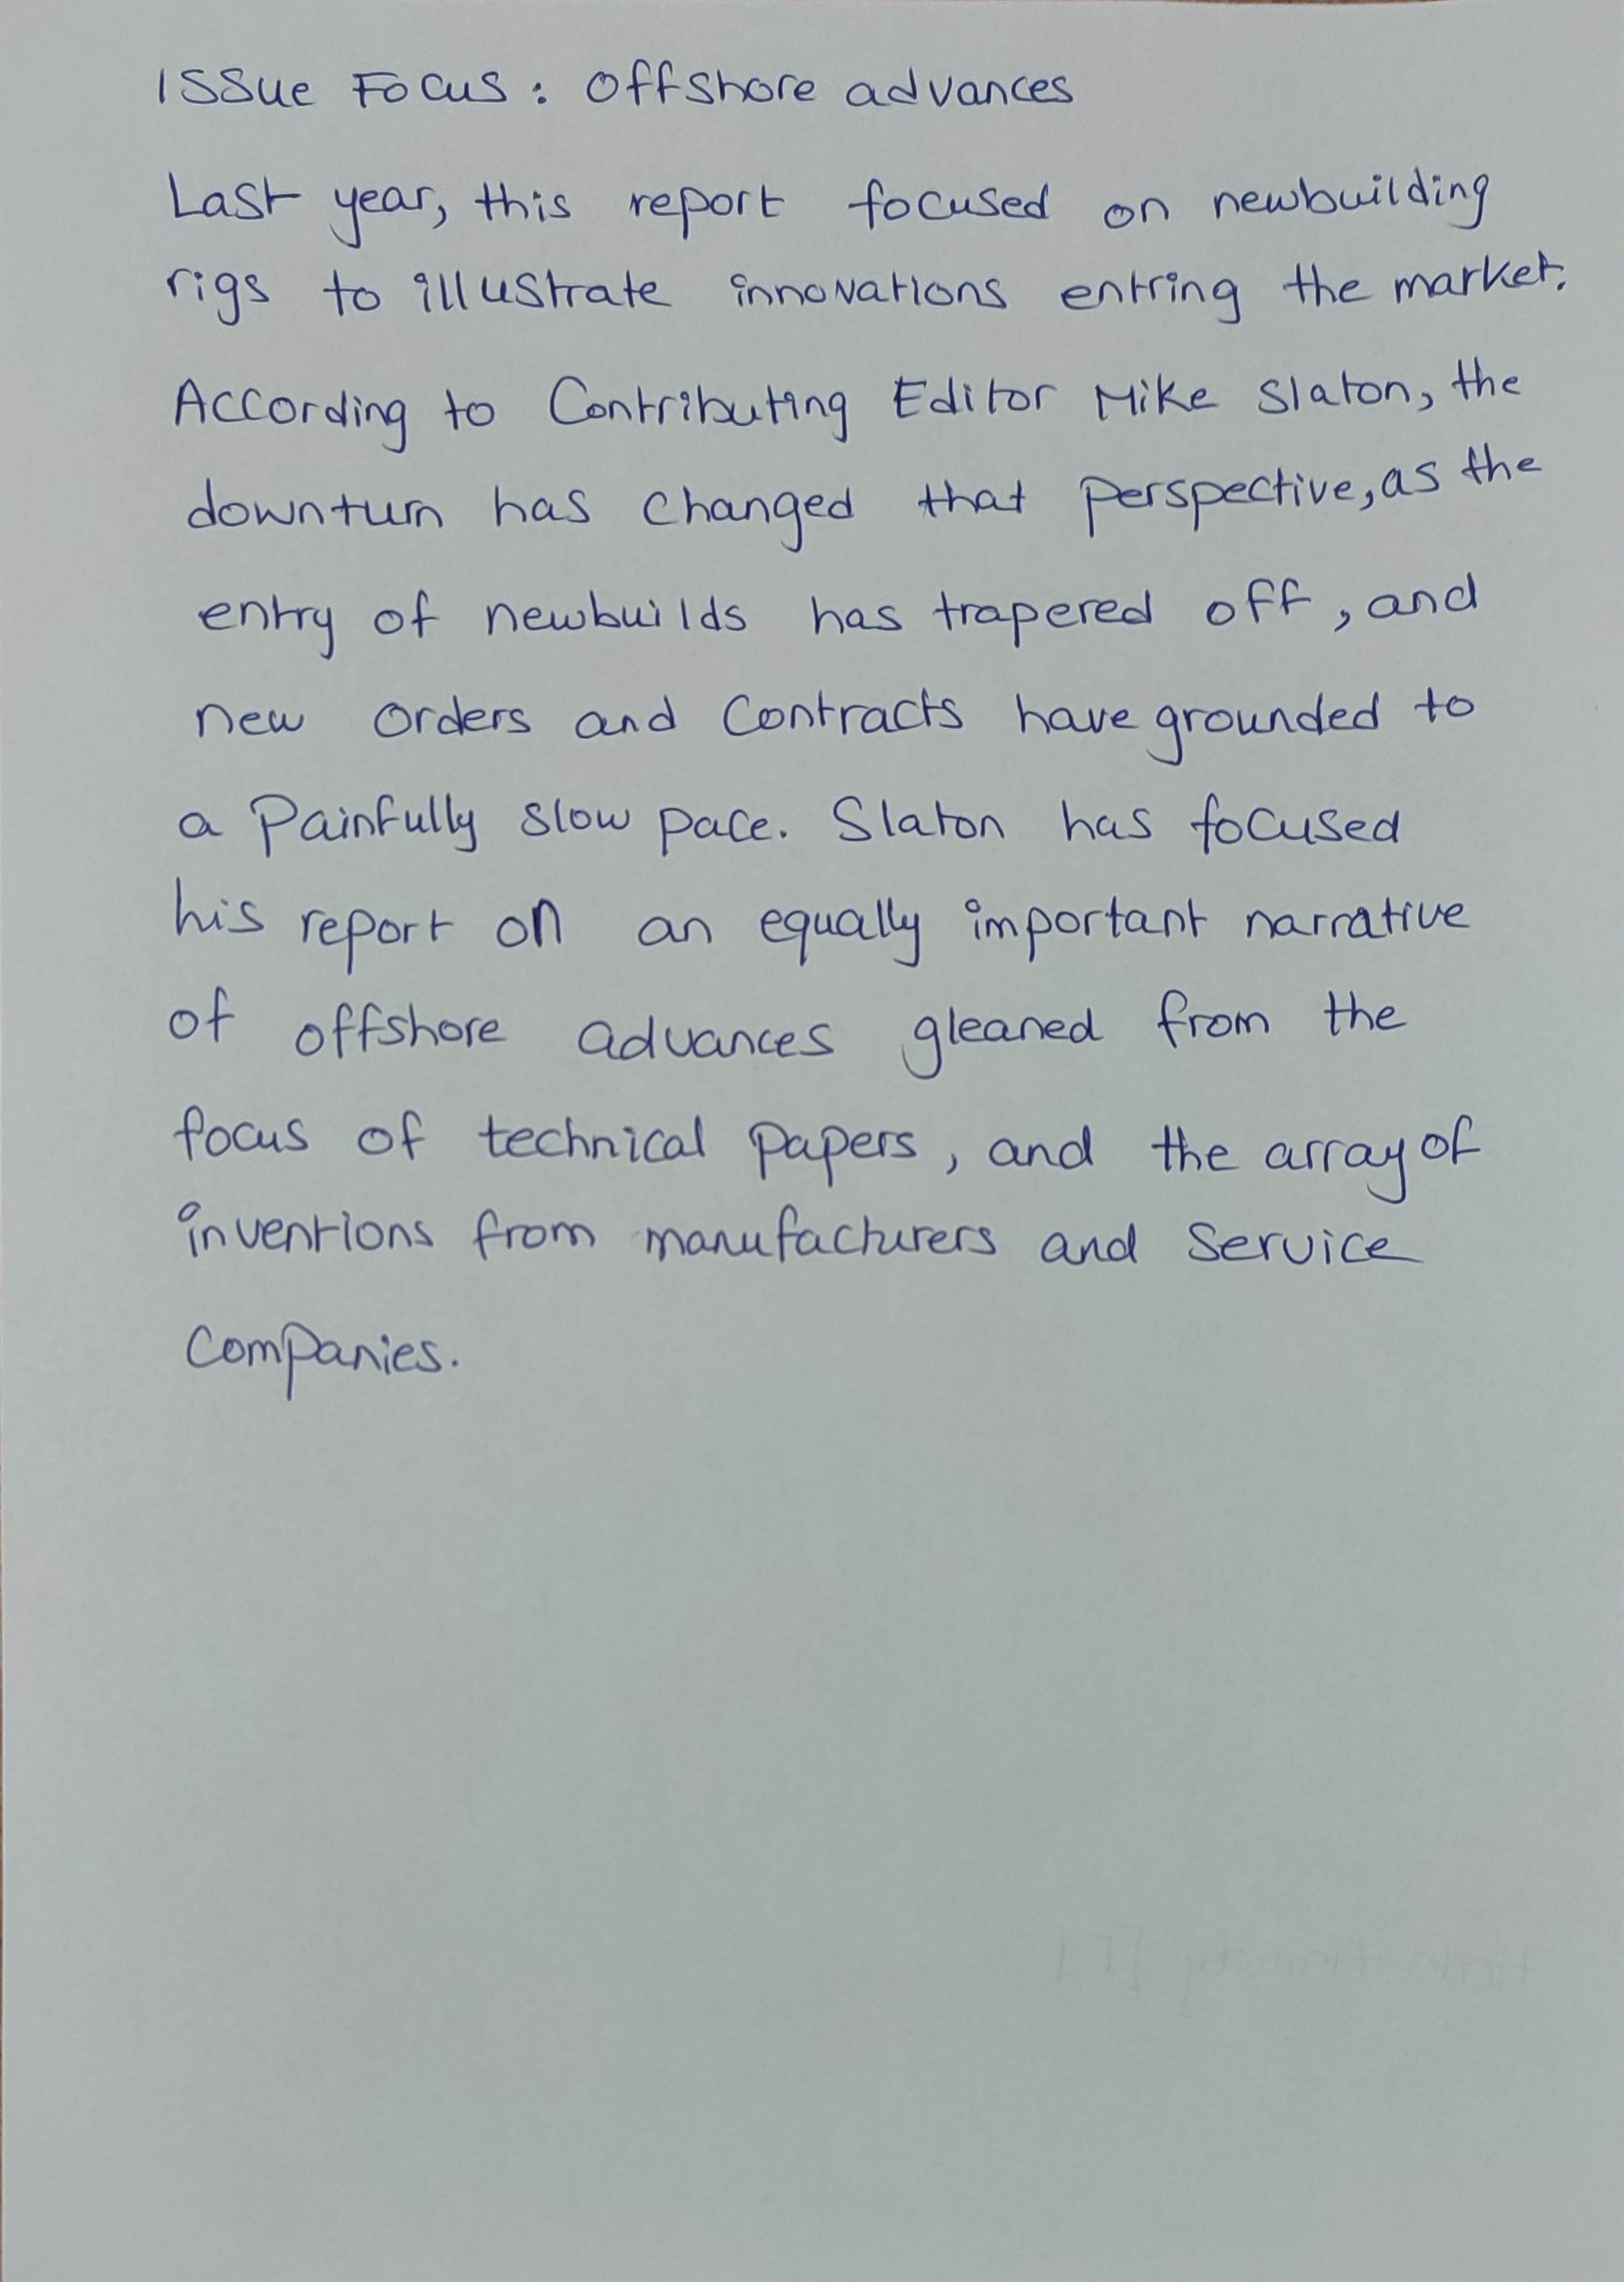 Issue Focus: Offshore advances
Last year, this report focused on newbuilding
rigs to illustrate innovations entring the market.
According to Contributing Editor Mike Slaton, the
downturn has changed that perspective, as the
entry of newbuilds has trapered off, and
new orders and Contracts have grounded to
a Painfully slow pace. Slaton has focused
his report on an equally important narrative
of offshore advances gleaned from the
focus of technical papers, and the array of
inventions from manufacturers and Service
Companies.